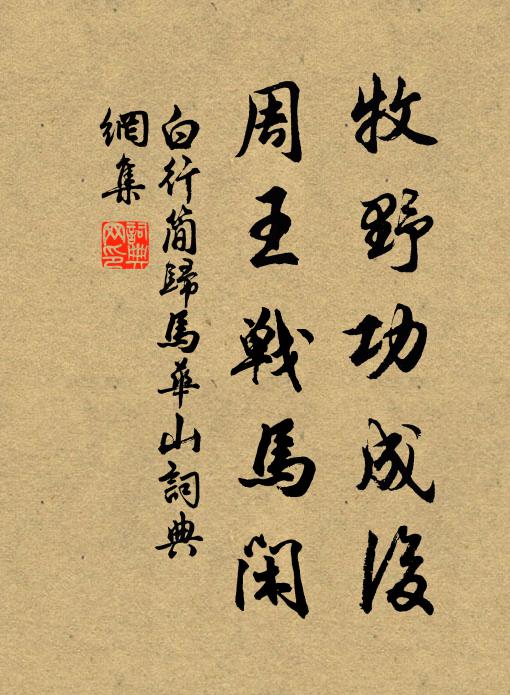 牧野功成後
周王戰馬閑
白行简歸馬華山詞典
網集
詞典
网印